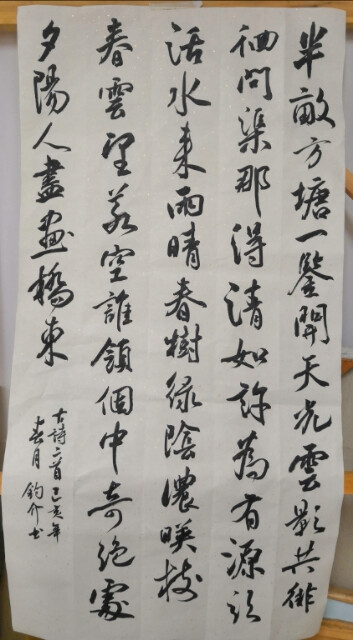 半畝方塘一鑒開天光雲影共徘
徊問渠那得清如許為有源頭
活水来雨晴春樹緑陰濃映枝
春雲望若空誰領個中奇絶處
夕陽人盡畫橋東
古詩二首己亥年
春月鈞介书